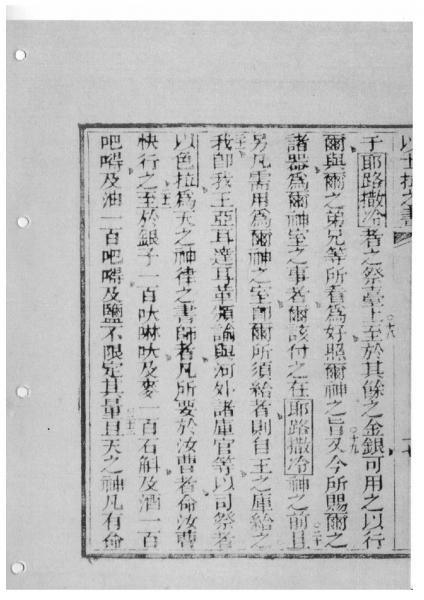 以士拉之書
子耶路撒冷者之祭臺上至於其餘之金銀可用之以行
○十八
爾與爾之弟兄等所看為好照爾神之旨又今所賜爾之
○十九
諸器為爾神室之事者爾該付之在耶路撒冷神之前且
○二十
另凡需用為爾神之室而爾所須給者則自王之庫給之
我即我王亞耳達耳革類諭與河外諸庫官等以司祭者
以色拉為天之神律之書師者凡所要於汝曹者俞汝曹
快行之至於銀子一百吠嚇吠及麥一百石斛及酒一百
吧嘺及油一百吧嘺及鹽不限定其量且天之神凡有俞